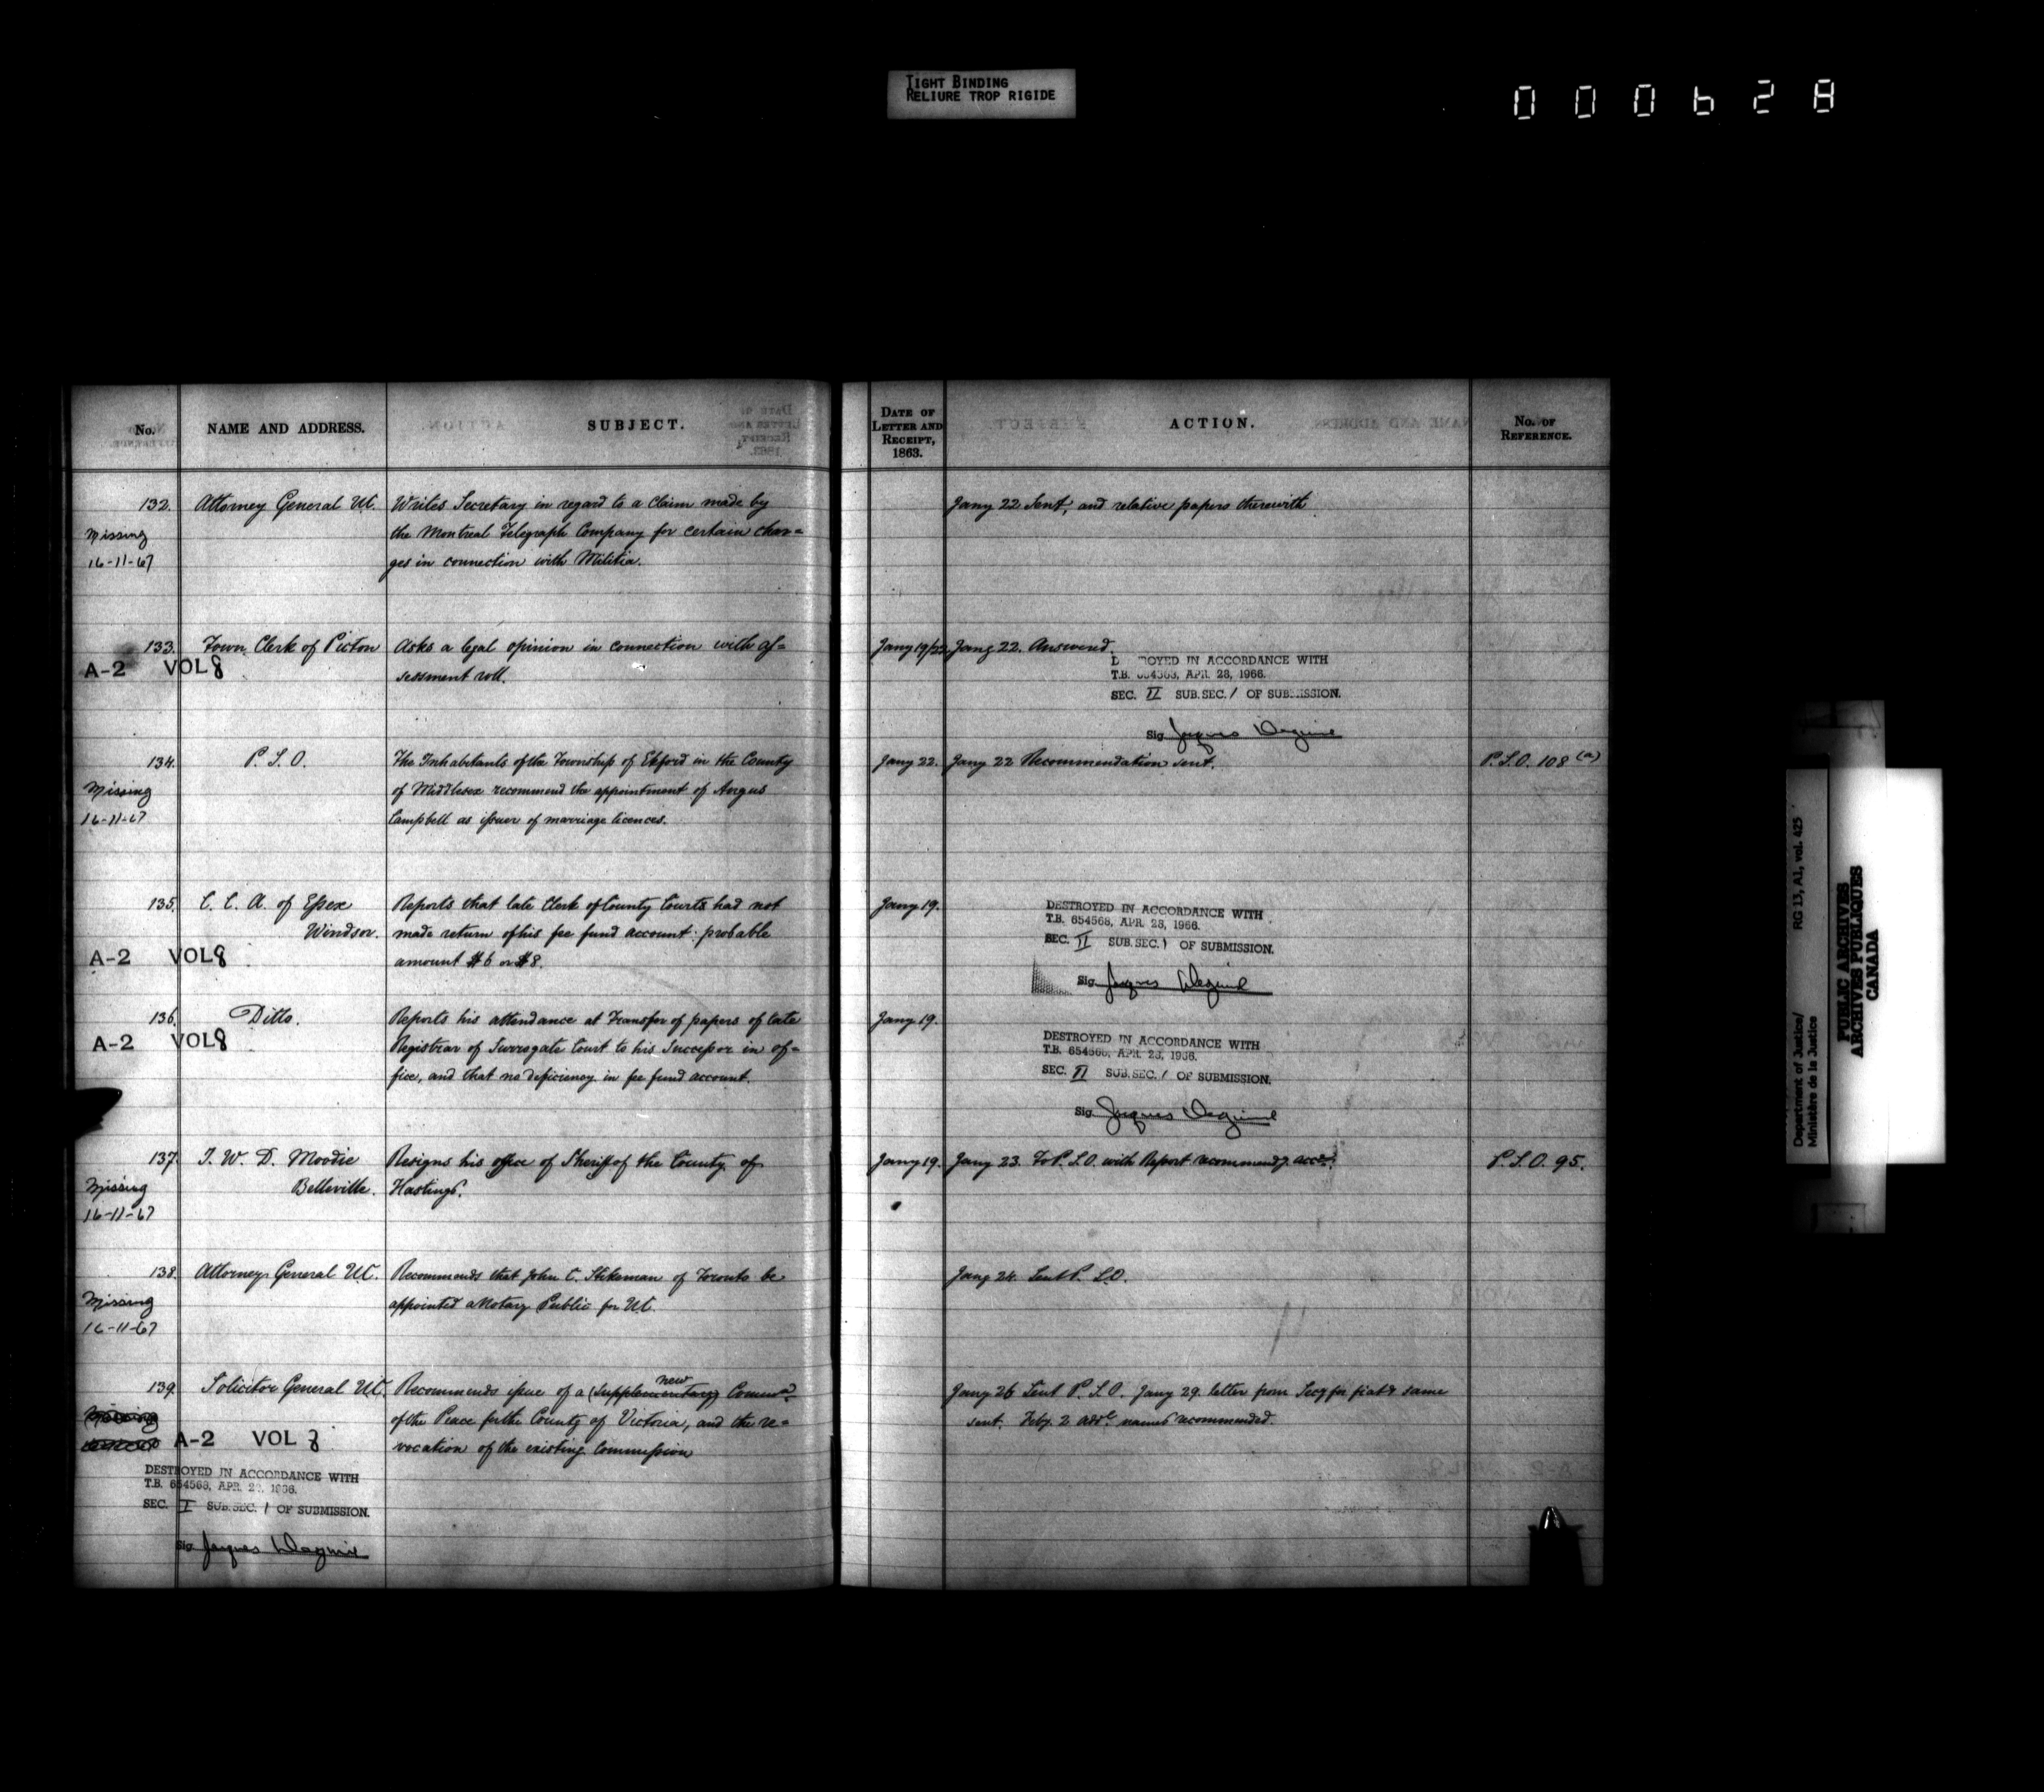 TIGHT BINDING
RELIURE TROP RIGIDE
000628
No. NAME AND ADDRESS. SUBJECT. DATE OF LETTER AND RECEIPT, 1863. ACTION. No. OF REFERENCE.
132. Attorney General UC. Writes Secretary in regard to a claim made by Jany 22 Sent, and relative papers therewith
Missing the Montreal Telegraph Company for certain char=
16-11-67 ges in connection with Militia.
133. Town Clerk of Picton Asks a legal opinion in connection with as= Jany 19/22. Jany 22. Answered.
A-2 VOL 8 sessment roll.
D ROYED IN ACCORDANCE WITH
T.B. 654568, APR. 28, 1966.
SEC. II SUB.SEC. 1 OF SUBMISSION.
Sig. Jacques
134. P. S. O. The Inhabitants of the Township of Ekford in the County Jany 22. Jany 22 Recommendation sent. P.S.O. 108 (a)
Missing of Middlesex recommend the appointment of Angus
16-11-67 Campbell as issuer of marriage licences.
135. C. C. A. of Essex Reports that late Clerk of County Courts had not Jany 19.
Windsor. made return of his fee fund account: probable
A-2 VOL 8 amount $6 or $8.
DESTROYED IN ACCORDANCE WITH
T.B. 654568, APR. 28, 1966.
SEC. II SUB.SEC. 1 OF SUBMISSION.
Sig. Jacques
136. Ditto. Reports his attendance at transfer of papers of late Jany 19.
A-2 VOL 8 Registrar of Surrogate Court to his Successor in of=
fice, and that no deficiency in fee fund account.
DESTROYED IN ACCORDANCE WITH
T.B. 654568, APR. 28, 1966.
SEC. II SUB.SEC. 1 OF SUBMISSION.
Sig. Jacques
137. J. W. D. Moodie Resigns his office of Sheriff of the County of Jany 19. Jany 23. To P.S.O. with Report recommendg. acce. P.S.O. 95.
Missing Belleville. Hastings.
16-11-67
138. Attorney General U.C. Recommends that John C. Stikeman of Toronto be Jany 24. Sent P. S.O.
Missing appointed a Notary Public for UC.
16-11-67
new
139. Solicitor General U.C. Recommends issue of a (Supplementary) Commn. Jany 26 Sent P. S. O. Jany 29. letter from Secy for fiat & same
of the Peace for the County of Victoria, and the re= sent. Feby. 2 addl. names recommended.
A-2 VOL 8 vocation of the existing Commission
DESTROYED IN ACCORDANCE WITH
T.B. 654568, APR. 28, 1966.
SEC. I SUB.SEC. 1 OF SUBMISSION.
Sig. Jacques
Department of Justice/ RG 13, A1, vol. 425
Ministère de la Justice
PUBLIC ARCHIVES
ARCHIVES PUBLIQUES
CANADA